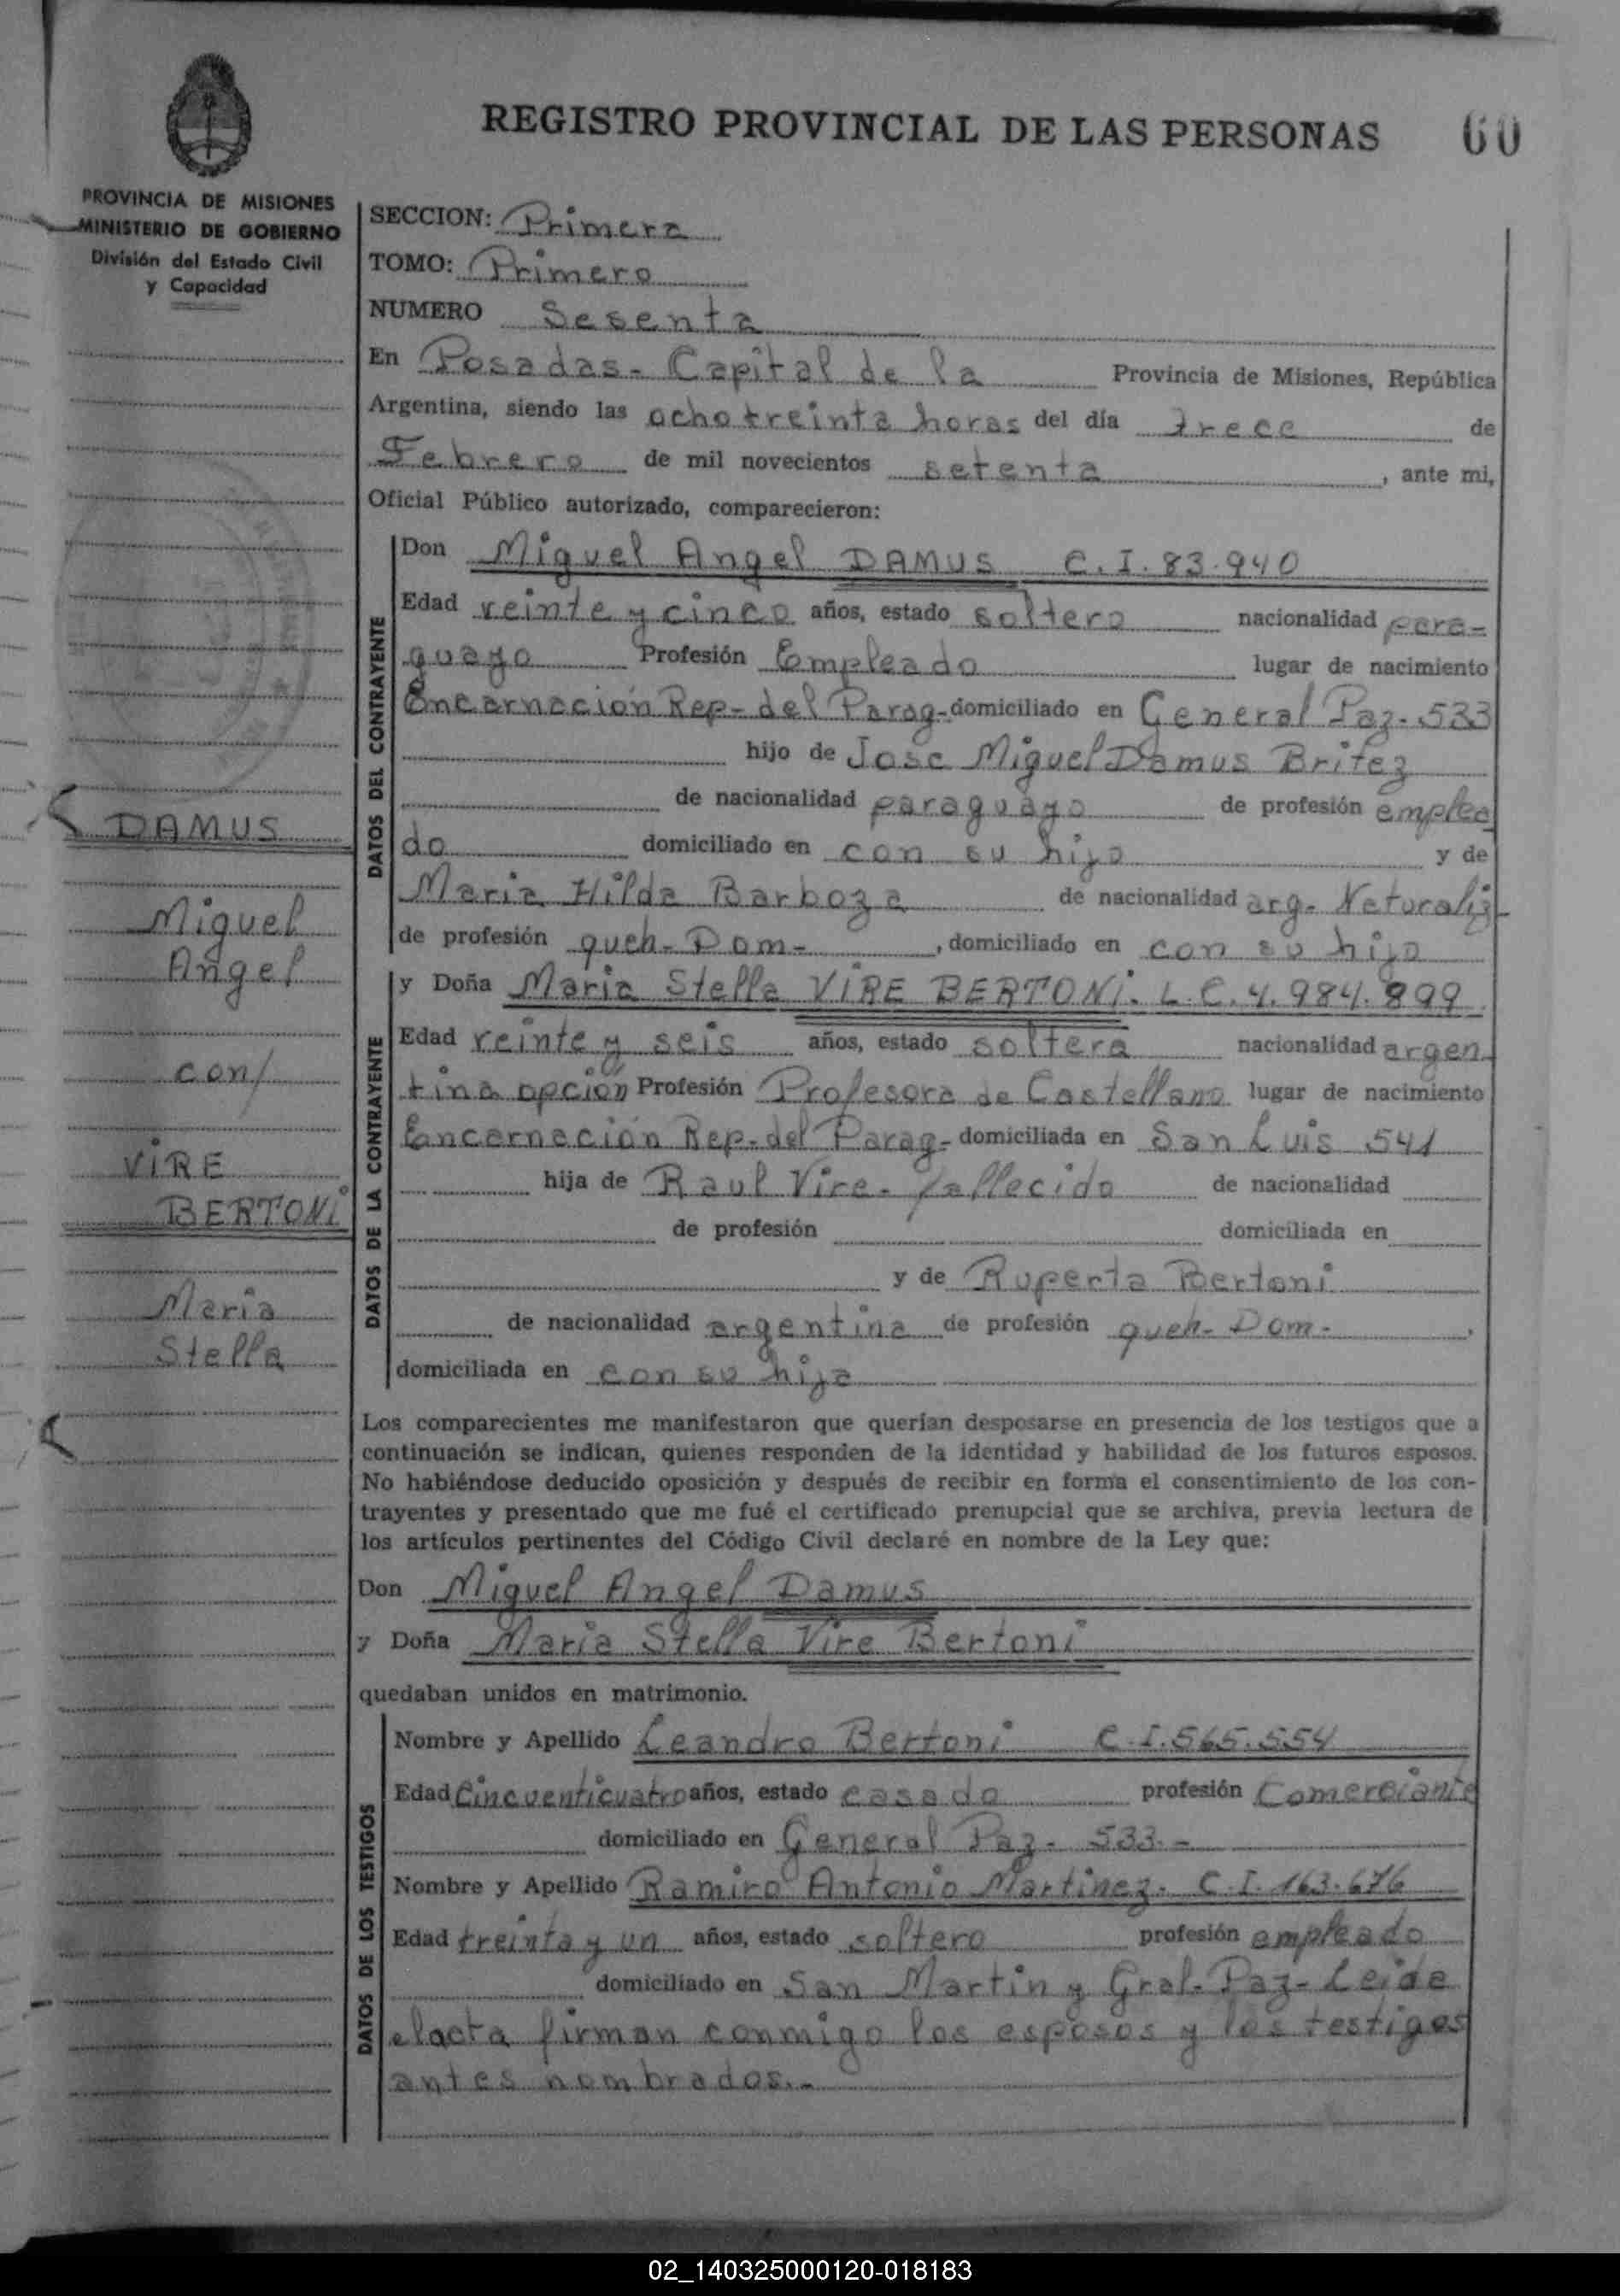 REGISTRO PROVINCIAL DE LAS PERSONAS 60
PROVINCIA DE MISIONES
MINISTERIO DE GOBIERNO
División del Estado Civil
y Capacidad
SECCION: Primera
TOMO: Primero
NUMERO Sesenta
En Posadas- Capital de la Provincia de Misiones, República
Argentina, siendo las ocho treinta horas del día trece de
Febrero de mil novecientos setenta, ante mi,
Oficial Público autorizado, comparecieron:
DATOS DEL CONTRAYENTE
Don Miguel Angel DAMUS C.I. 83.940
Edad veinte y cinco años, estado soltero nacionalidad para-
guayo Profesión Empleado lugar de nacimiento
Encarnación Rep- del Parag- domiciliado en General Paz- 533
hijo de Jose Miguel Damus Britez
de nacionalidad paraguayo de profesión emplea
do domiciliado en con su hijo y de
Maria Hilda Barboza de nacionalidad arg- Naturaliz-
de profesión queh- Dom-, domiciliado en con su hijo
DATOS DE LA CONTRAYENTE
y Doña Maria Stella VIRE BERTONI. L.C. 4.984.899
Edad veinte y seis años, estado soltera nacionalidad argen-
tina opción Profesión Profesora de Castellano lugar de nacimiento
Encarnación Rep- del Parag- domiciliada en San Luis 541
hija de Raul Vire- fallecido de nacionalidad
de profesión domiciliada en
y de Ruperta Bertoni
de nacionalidad argentina de profesión queh- Dom-.
domiciliada en con su hija
DAMUS
Miguel
Angel
con/
VIRE
BERTONI
Maria
Stella
Los comparecientes me manifestaron que querían desposarse en presencia de los testigos que a
continuación se indican, quienes responden de la identidad y habilidad de los futuros esposos.
No habiéndose deducido oposición y después de recibir en forma el consentimiento de los con-
trayentes y presentado que me fué el certificado prenupcial que se archiva, previa lectura de
los artículos pertinentes del Código Civil declaré en nombre de la Ley que:
Don Miguel Angel Damus
y Doña Maria Stella Vire Bertoni
quedaban unidos en matrimonio.
DATOS DE LOS TESTIGOS
Nombre y Apellido Leandro Bertoni C.I. 565.554
Edad Cincuenticuatro años, estado casado profesión Comerciante
domiciliado en General Paz- 533.-
Nombre y Apellido Ramiro Antonio Martinez- C.I. 163.676
Edad treinta y un años, estado soltero profesión empleado
domiciliado en San Martin y Gral- Paz- Leida
el acta firman conmigo los esposos y los testigos
antes nombrados.-
02_140325000120-018183